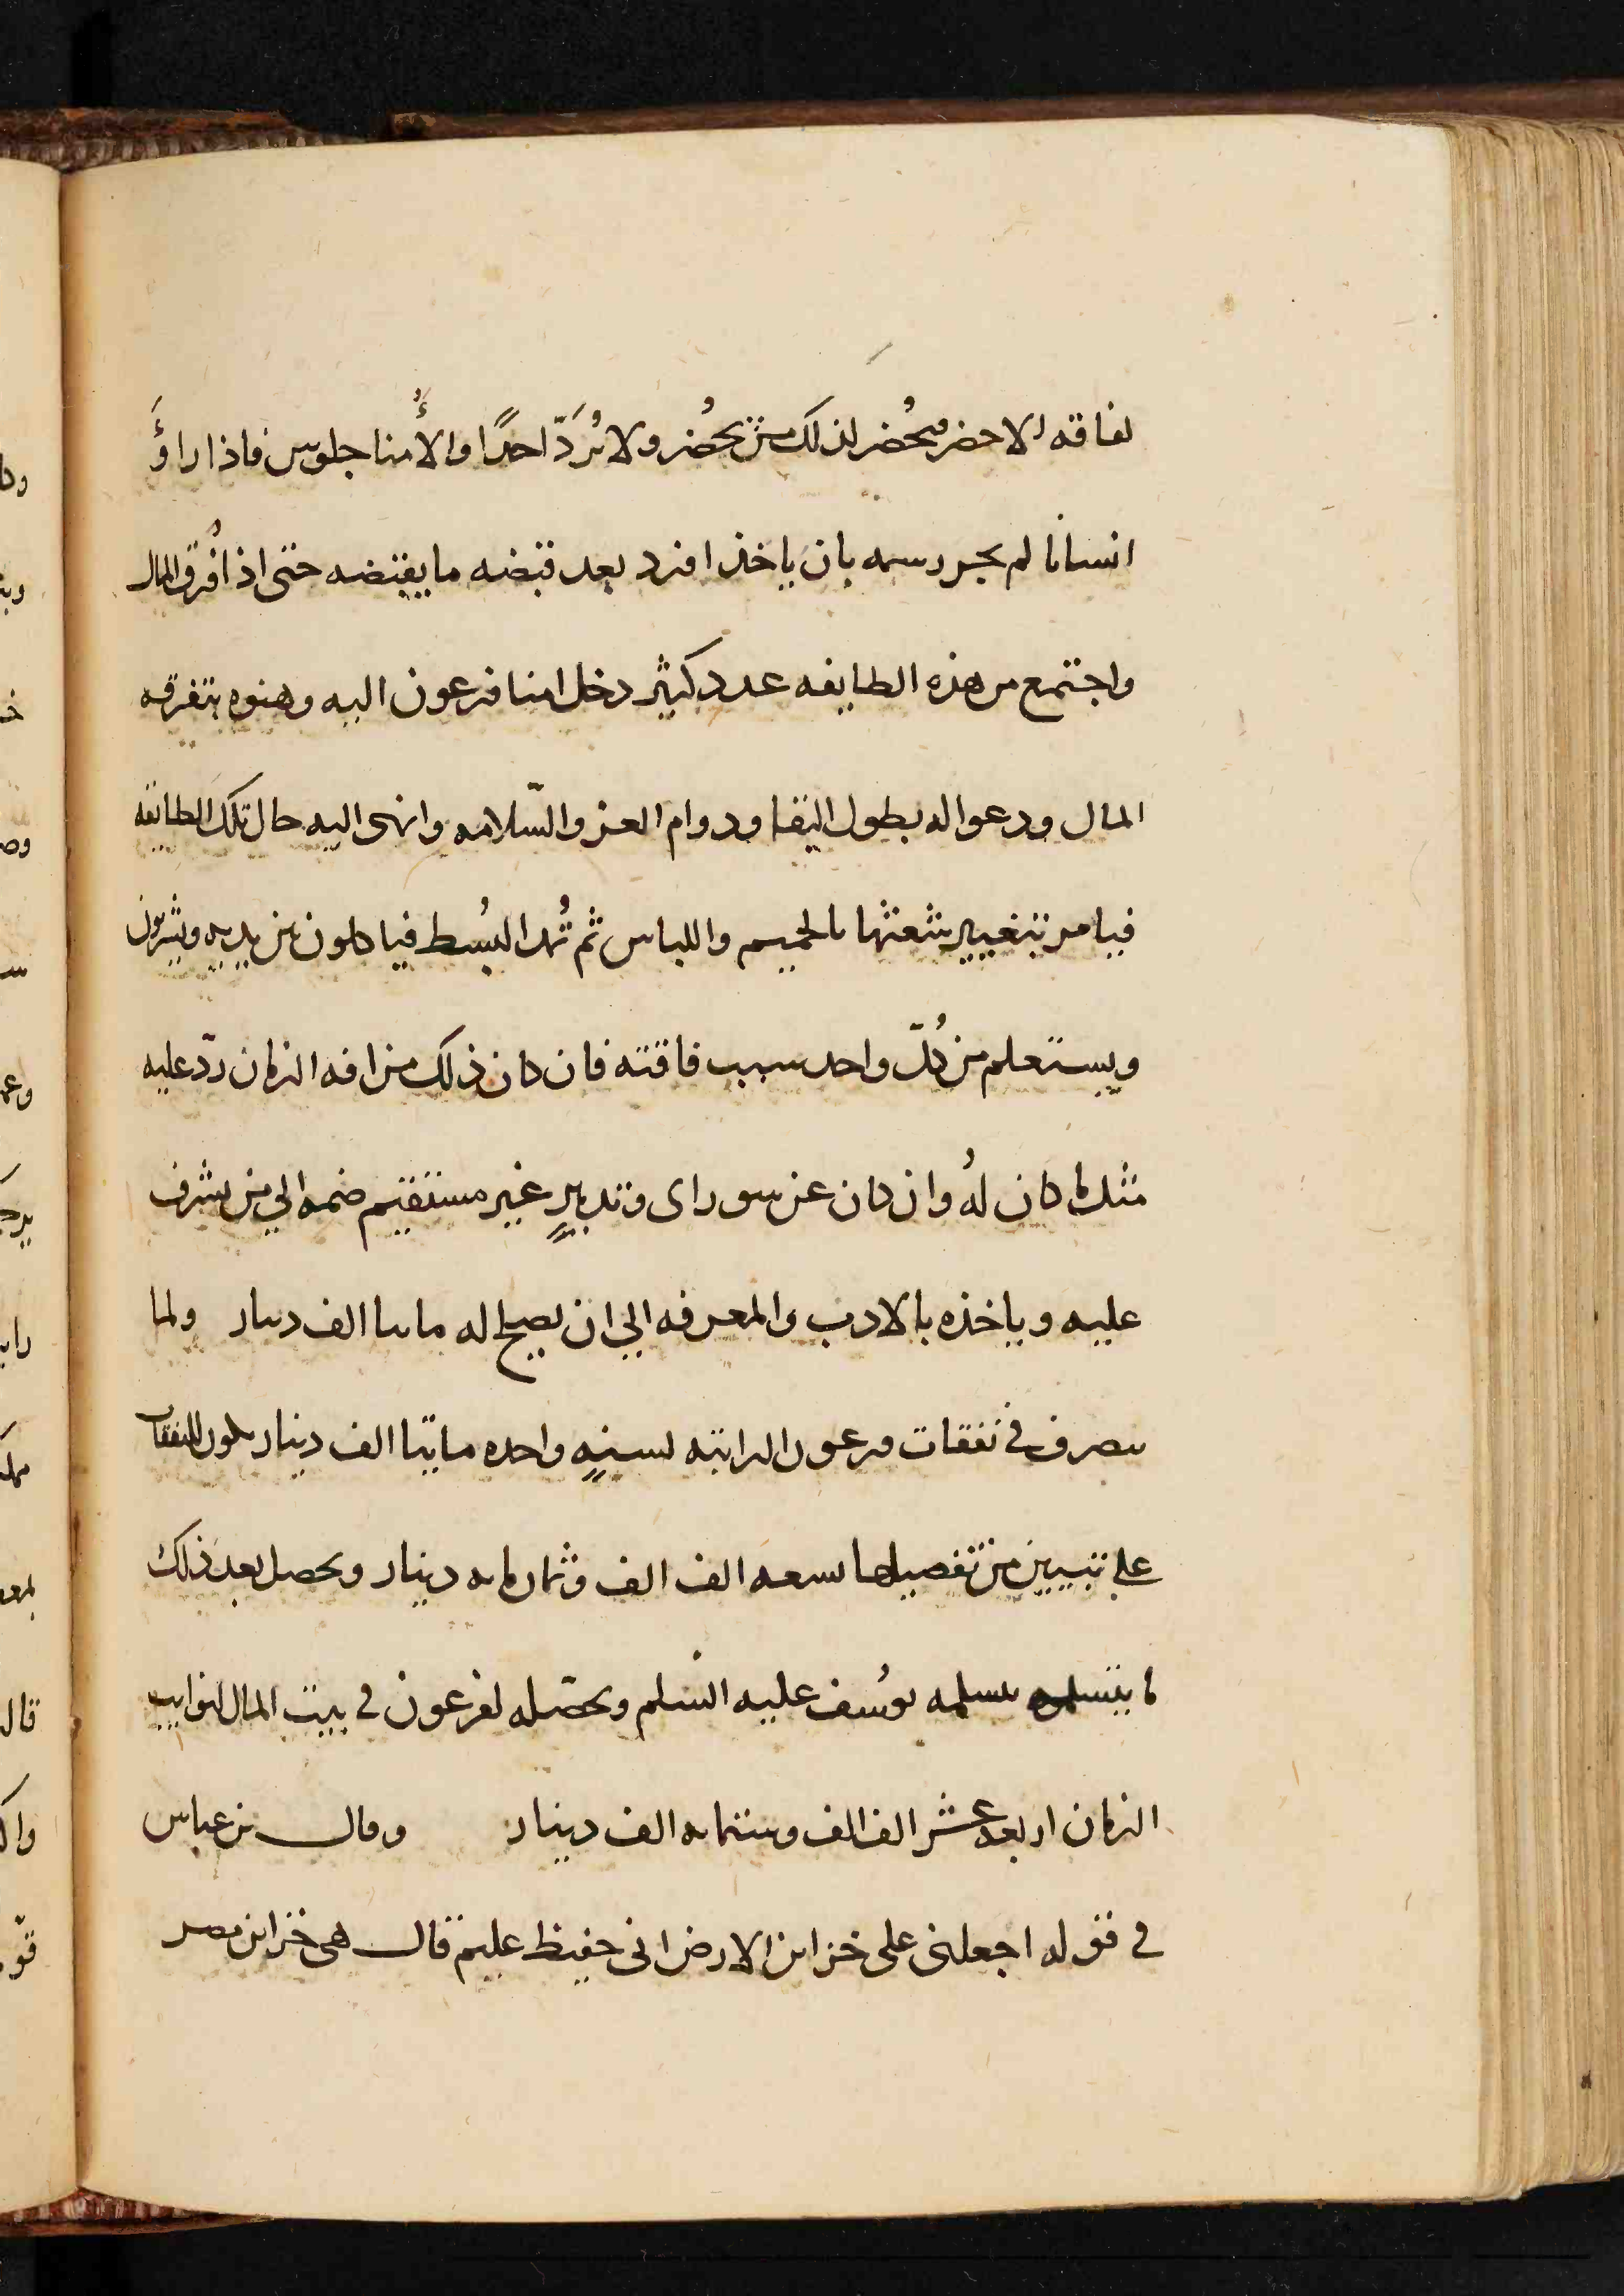 لفاقه الا حضر فيحُضر لذلك من يحُضر ولا يُردّ احدًا والأُمنا جلوس فاذا راؤَ
انسانا لم يجر رسمه بان ياخذ افرد بعد قبضه ما يقبضه حتى اذا فُرق المال
واجتمع من هذه الطايفه عدد كثير دخل امنا فرعون اليه وهنوه بتفرقه
المال ودعوا له بطول البقا ودوام العز والسّلامه وانهى اليه حال تلك الطايفه
فيامر بتغيير شعثها بالحميم واللباس ثم تُمد البُسط فياكلون بين يديه ويشربون
ويستعلم من كُلّ واحد سبب فاقته فان كان ذلك من افه الزمان ردّ عليه
مثل ما كان لهُ وان كان عن سو راى وتدبيرٍ غير مستقيم ضمه الي من يشرف
عليه وياخذه بالادب والمعرفه الي ان يصلح له مايتا الف دينار ولما
ينصرف في نفقات فرعون الراتبه لسنهٍ واحده مايتا الف دينار يكون النفقات
علي تبيين من تفصيلها تسعه الف الف وثمان مايه دينار ويحصل بعد ذلك
ما يتسلمه يتسلمه يوسُف عليه السلم ويحصّله لفرعون في بيت المال لنوايب
الزمان اربعه عشر الف الف وستمايه الف دينار وقال بن عباس
في قوله اجعلني على خزاين الارض اني حفيظ عليم قال هى خزاين مصر